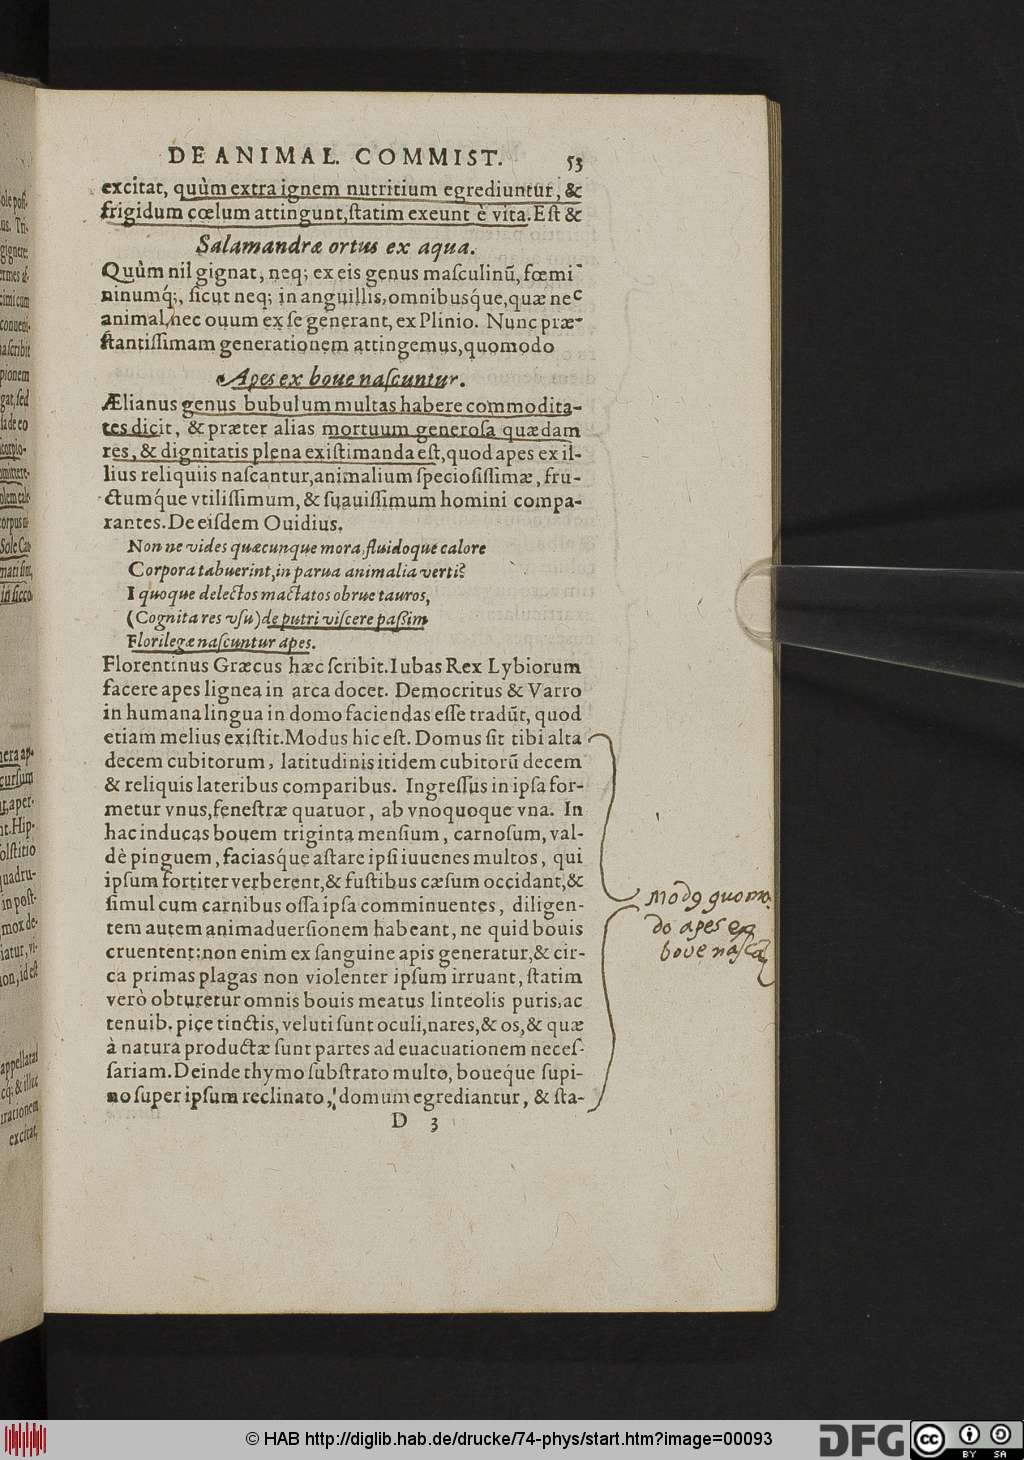 DE ANIMAL. COMMIST. 53
excitat, quùm extra ignem nutritium egrediuntur, &
frigidum cœlum attingunt, ſtatim exeunt è vita. Eſt &
Salamandræ ortus ex aqua.
Quùm nil gignat, neq; ex eis genus maſculinū, fœmi
ninumq́;, ſicut neq; in anguillis, omnibuſq́ue, quæ nec
animal, nec ouum ex ſe generant, ex Plinio. Nunc præ-
ſtantiſſimam generationem attingemus, quomodo
Apes ex boue naſcuntur.
Ælianus genus bubulum multas habere commodita-
tes dicit, & præter alias mortuum generoſa quædam
res, & dignitatis plena exiſtimanda eſt, quod apes ex il-
lius reliquiis naſcantur, animalium ſpecioſiſſimæ, fru-
ctumq́ue vtiliſſimum, & ſuauiſſimum homini compa-
rantes. De eiſdem Ouidius.
Non ne vides quæcunque mora, fluidoque calore
Corpora tabuerint, in parua animalia verti?
I quoque delectos mactatos obrue tauros,
(Cognita res vſu) de putri viſcere paſſim
Florilegæ naſcuntur apes.
Florentinus Græcus hæc ſcribit. Iubas Rex Lybiorum
facere apes lignea in arca docet. Democritus & Varro
in humana lingua in domo faciendas eſſe tradūt, quod
etiam melius exiſtit. Modus hic eſt. Domus ſit tibi alta
decem cubitorum, latitudinis itidem cubitorū decem
& reliquis lateribus comparibus. Ingreſſus in ipſa for-
metur vnus, feneſtræ quatuor, ab vnoquoque vna. In
hac inducas bouem triginta menſium, carnoſum, val-
dè pinguem, faciaſq́ue aſtare ipſi iuuenes multos, qui
ipſum fortiter verberent, & fuſtibus cæſum occidant, &
ſimul cum carnibus oſſa ipſa comminuentes, diligen-
tem autem animaduerſionem habeant, ne quid bouis
cruentent: non enim ex ſanguine apis generatur, & cir-
ca primas plagas non violenter ipſum irruant, ſtatim
verò obturetur omnis bouis meatus linteolis puris, ac
tenuib. pice tinctis, veluti ſunt oculi, nares, & os, & quæ
à natura productæ ſunt partes ad euacuationem neceſ-
ſariam. Deinde thymo ſubſtrato multo, boueq́ue ſupi-
no ſuper ipſum reclinato, domum egrediantur, & ſta-
D 3
Modꝰ quomo
do apes ex
boue naſcā
© HAB http://diglib.hab.de/drucke/74-phys/start.htm?image=00093
DFG
cc BY SA